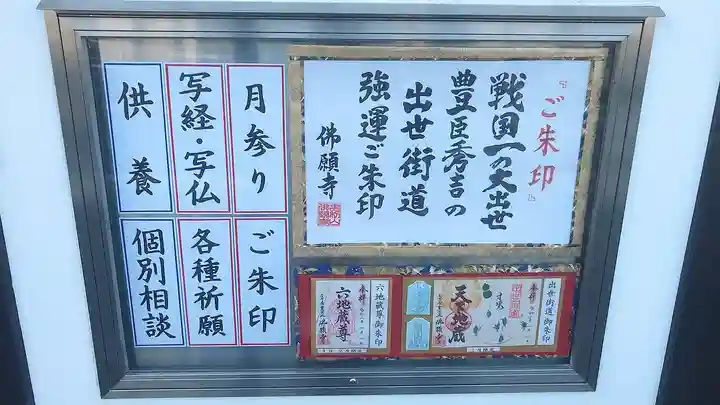 『ご朱印』
戦国一の大出世
豊臣秀吉の
出世街道
強運ご朱印
佛願寺
月参り
写経・写仏
供養
ご朱印
各種祈願
個別相談
出世街道御朱印
奉拝
天下地蔵
佛願寺
六地蔵尊御朱印
奉拝
六地蔵尊
佛願寺